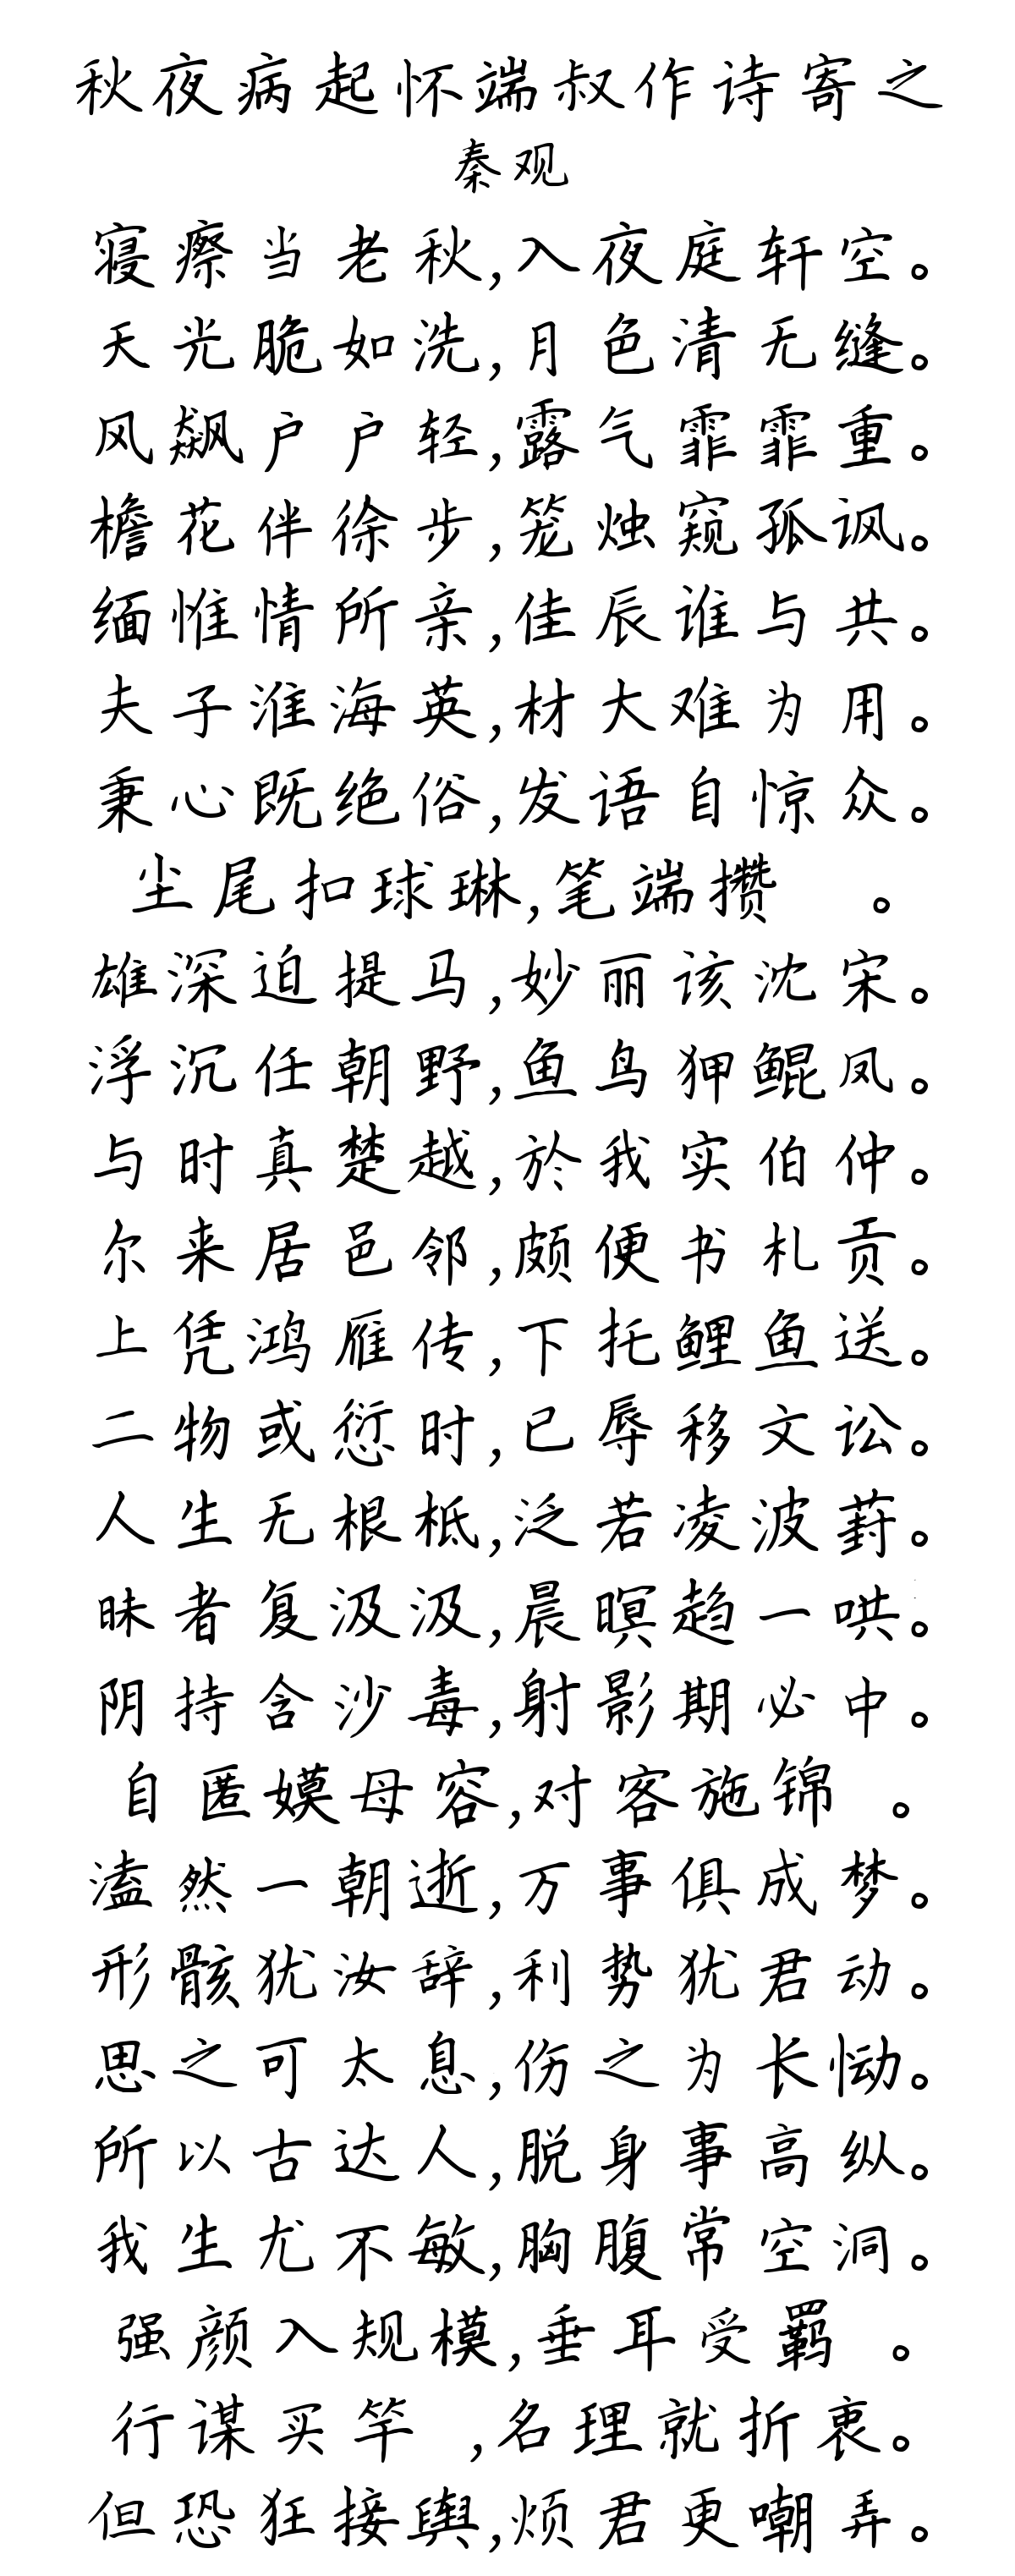 秋夜病起怀端叔作诗寄之
秦观
寝瘵当老秋,入夜庭轩空。
天光脆如洗,月色清无缝。
风飙户户轻,露气霏霏重。
檐花伴徐步,笼烛窥孤讽。
缅惟情所亲,佳辰谁与共。
夫子淮海英,材大难为用。
秉心既绝俗,发语自惊众。
尘尾扣球琳,笔端攒 。
雄深迫提马,妙丽该沈宋。
浮沉任朝野,鱼鸟狎鲲凤。
与时真楚越,於我实伯仲。
尔来居邑邻,颇便书札贡。
上凭鸿雁传,下托鲤鱼送。
二物或愆时,已辱移文讼。
人生无根柢,泛若凌波葑。
昧者复汲汲,晨暝趋一哄。
阴持含沙毒,射影期必中。
自匿嫫母容,对客施锦 。
溘然一朝逝,万事俱成梦。
形骸犹汝辞,利势犹君动。
思之可太息,伤之为长恸。
所以古达人,脱身事高纵。
我生尤不敏,胸腹常空洞。
强颜入规模,垂耳受羁 。
行谋买竿 ,名理就折衷。
但恐狂接舆,烦君更嘲弄。